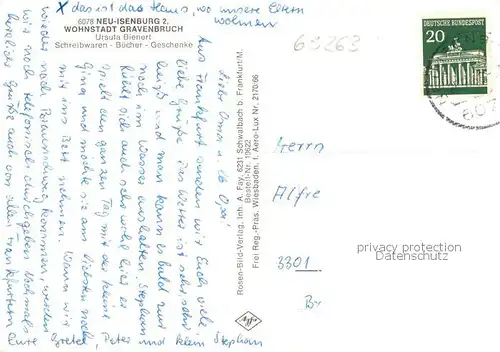 X das ist das Haus, wo unsere Eltern
wohnen
6078 NEU-ISENBURG 2.
WOHNSTADT GRAVENBRUCH
Ursula Bienert
Schreibwaren - Bücher - Geschenke
63263
DEUTSCHE BUNDESPOST
20
607
Liebe Oma u. lb. Opa!
Aus Frankfurt senden wir Euch viele
liebe Grüße. Das Wetter ist sehr sehr
heiß und man kann es bald nur
noch im Wasser aushalten. Stephan
fühlt sich auch sehr wohl hier, er
spielt den ganzen Tag mit der kleinen
Gina und möchte sie am liebsten noch
mit ins Bett nehmen. Wann wir
wieder nach Braunschweig kommen, werden
wir noch telefonisch durchgeben. Nochmals
herzliche Grüße auch von allen Frankfurtern
Eure Gretel, Peter und klein Stephan
Rosen-Bild-Verlag, Inh. A. Fay, 6231 Schwalbach b. Frankfurt/M.
Bestell-Nr. 13622
Frei Reg.-Präs. Wiesbaden. I. Aero-Lux Nr. 2170/66
Agfa
Herrn
Alfre
3301
Br
privacy protection
Datenschutz